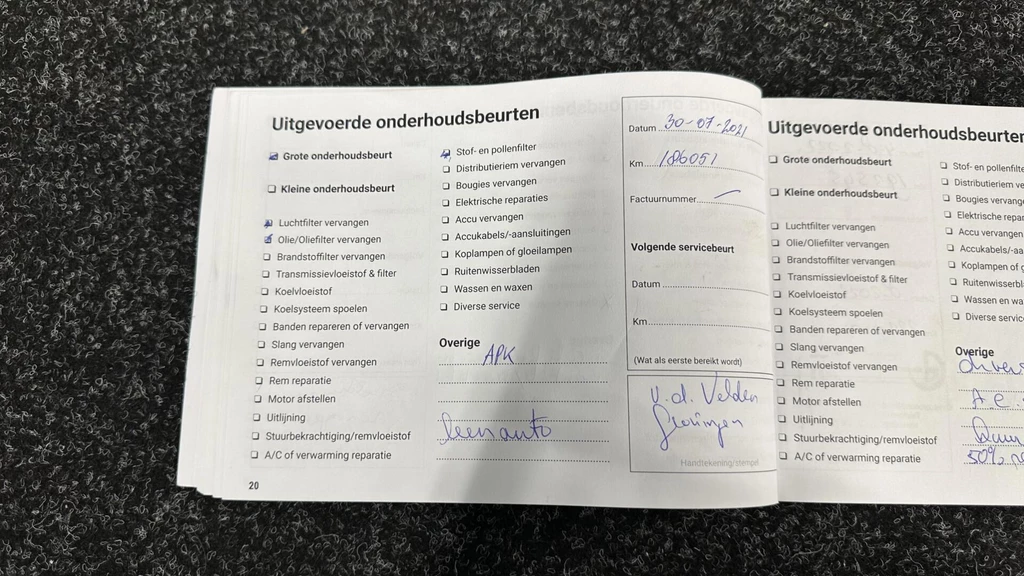 Uitgevoerde onderhoudsbeurten
Grote onderhoudsbeurt
Kleine onderhoudsbeurt
Luchtfilter vervangen
Olie/Oliefilter vervangen
Brandstoffilter vervangen
Transmissievloeistof & filter
Koelvloeistof
Koelsysteem spoelen
Banden repareren of vervangen
Slang vervangen
Remvloeistof vervangen
Rem reparatie
Motor afstellen
Uitlijning
Stuurbekrachtiging/remvloeistof
A/C of verwarming reparatie
20
Stof- en pollenfilter
Distributieriem vervangen
Bougies vervangen
Elektrische reparaties
Accu vervangen
Accukabels/-aansluitingen
Koplampen of gloeilampen
Ruitenwisserbladen
Wassen en waxen
Diverse service
Overige
APK
leenauto
Datum 30-07-2021
Km 186051
Factuurnummer
Volgende servicebeurt
Datum
Km
(Wat als eerste bereikt wordt)
v.d. Velden
Groningen
Handtekening/stempel
Uitgevoerde onderhoudsbeurten
Grote onderhoudsbeurt
Kleine onderhoudsbeurt
Luchtfilter vervangen
Olie/Oliefilter vervangen
Brandstoffilter vervangen
Transmissievloeistof & filter
Koelvloeistof
Koelsysteem spoelen
Banden repareren of vervangen
Slang vervangen
Remvloeistof vervangen
Rem reparatie
Motor afstellen
Uitlijning
Stuurbekrachtiging/remvloeistof
A/C of verwarming reparatie
Stof- en pollenfilte
Distributieriem ve
Bougies vervang
Elektrische repar
Accu vervangen
Accukabels/-aa
Koplampen of g
Ruitenwisserbl
Wassen en wa
Diverse servic
Overige
50%